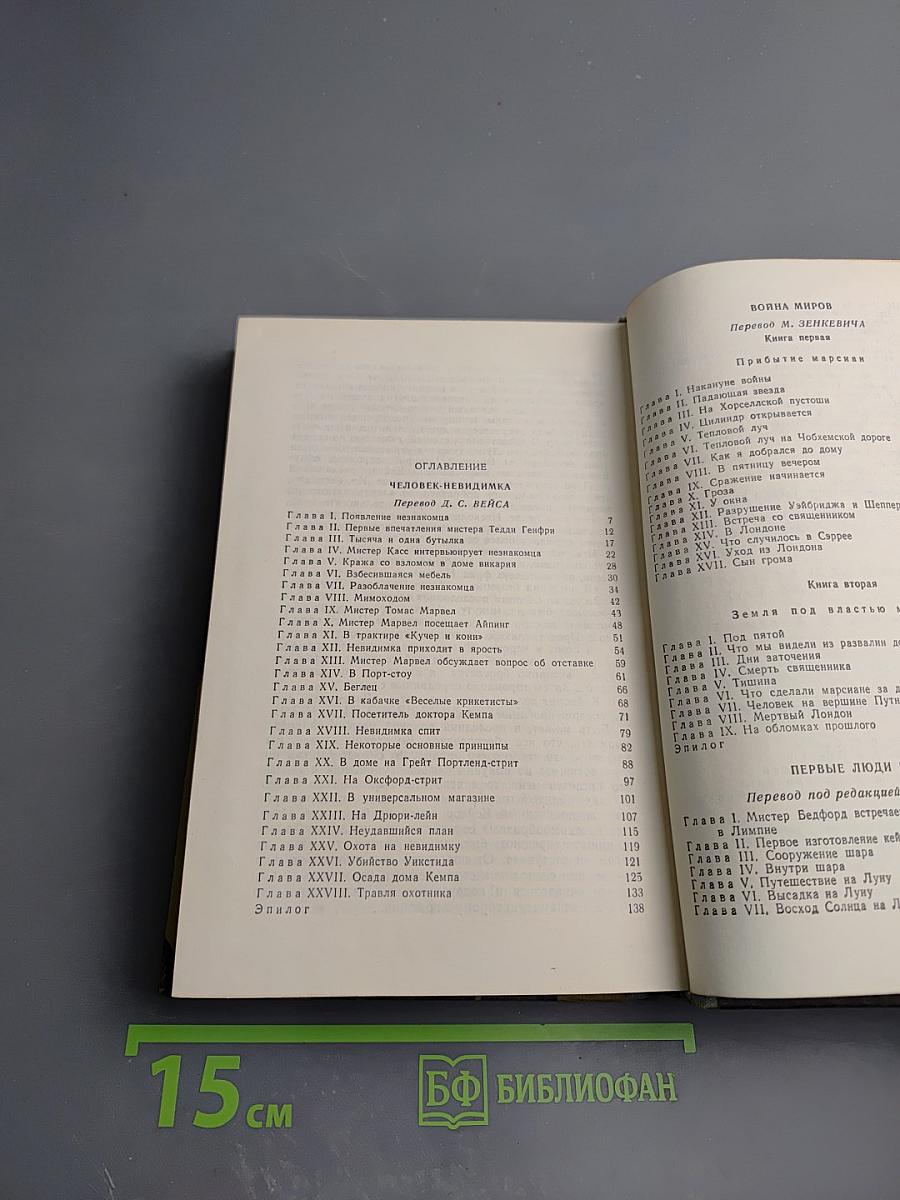 ОГЛАВЛЕНИЕ
ЧЕЛОВЕК-НЕВИДИМКА
Перевод Д. С. ВЕЙСА
Глава I. Появление незнакомца 7
Глава II. Первые впечатления мистера Тедди Генфри 12
Глава III. Тысяча и одна бутылка 17
Глава IV. Мистер Касс интервьюирует незнакомца 22
Глава V. Кража со взломом в доме викария 28
Глава VI. Взбесившаяся мебель 30
Глава VII. Разоблачение незнакомца 34
Глава VIII. Мимоходом 42
Глава IX. Мистер Томас Марвел 43
Глава X. Мистер Марвел посещает Айпинг 48
Глава XI. В трактире «Кучер и кони» 51
Глава XII. Невидимка приходит в ярость 54
Глава XIII. Мистер Марвел обсуждает вопрос об отставке 59
Глава XIV. В Порт-стоу 61
Глава XV. Беглец 66
Глава XVI. В кабачке «Веселые крикетисты» 68
Глава XVII. Посетитель доктора Кемпа 71
Глава XVIII. Невидимка спит 79
Глава XIX. Некоторые основные принципы 82
Глава XX. В доме на Грейт Портленд-стрит 88
Глава XXI. На Оксфорд-стрит 97
Глава XXII. В универсальном магазине 101
Глава XXIII. На Дрюри-лейн 107
Глава XXIV. Неудавшийся план 115
Глава XXV. Охота на невидимку 119
Глава XXVI. Убийство Уикстида 121
Глава XXVII. Осада дома Кемпа 125
Глава XXVIII. Травля охотника 133
Эпилог 138
ВОЙНА МИРОВ
Перевод М. ЗЕНКЕВИЧА
Книга первая
Прибытие марсиан
Глава I. Накануне войны
Глава II. Падающая звезда
Глава III. На Хорселлской пустоши
Глава IV. Цилиндр открывается
Глава V. Тепловой луч
Глава VI. Тепловой луч на Чобхемской дороге
Глава VII. Как я добрался до дому
Глава VIII. В пятницу вечером
Глава IX. Сражение начинается
Глава X. Гроза
Глава XI. У окна
Глава XII. Разрушение Уэйбриджа и Шеппер
Глава XIII. Встреча со священником
Глава XIV. В Лондоне
Глава XV. Что случилось в Сэррее
Глава XVI. Уход из Лондона
Глава XVII. Сын грома
Книга вторая
Земля под властью м
Глава I. Под пятой
Глава II. Что мы видели из развалин до
Глава III. Дни заточения
Глава IV. Смерть священника
Глава V. Тишина
Глава VI. Что сделали марсиане за д
Глава VII. Человек на вершине Путн
Глава VIII. Мертвый Лондон
Глава IX. На обломках прошлого
Эпилог
ПЕРВЫЕ ЛЮДИ
Перевод под редакцией
Глава I. Мистер Бедфорд встречает
в Лимпне
Глава II. Первое изготовление кей
Глава III. Сооружение шара
Глава IV. Внутри шара
Глава V. Путешествие на Луну
Глава VI. Высадка на Луну
Глава VII. Восход Солнца на Л
15 см
БФ БИБЛИОФАН